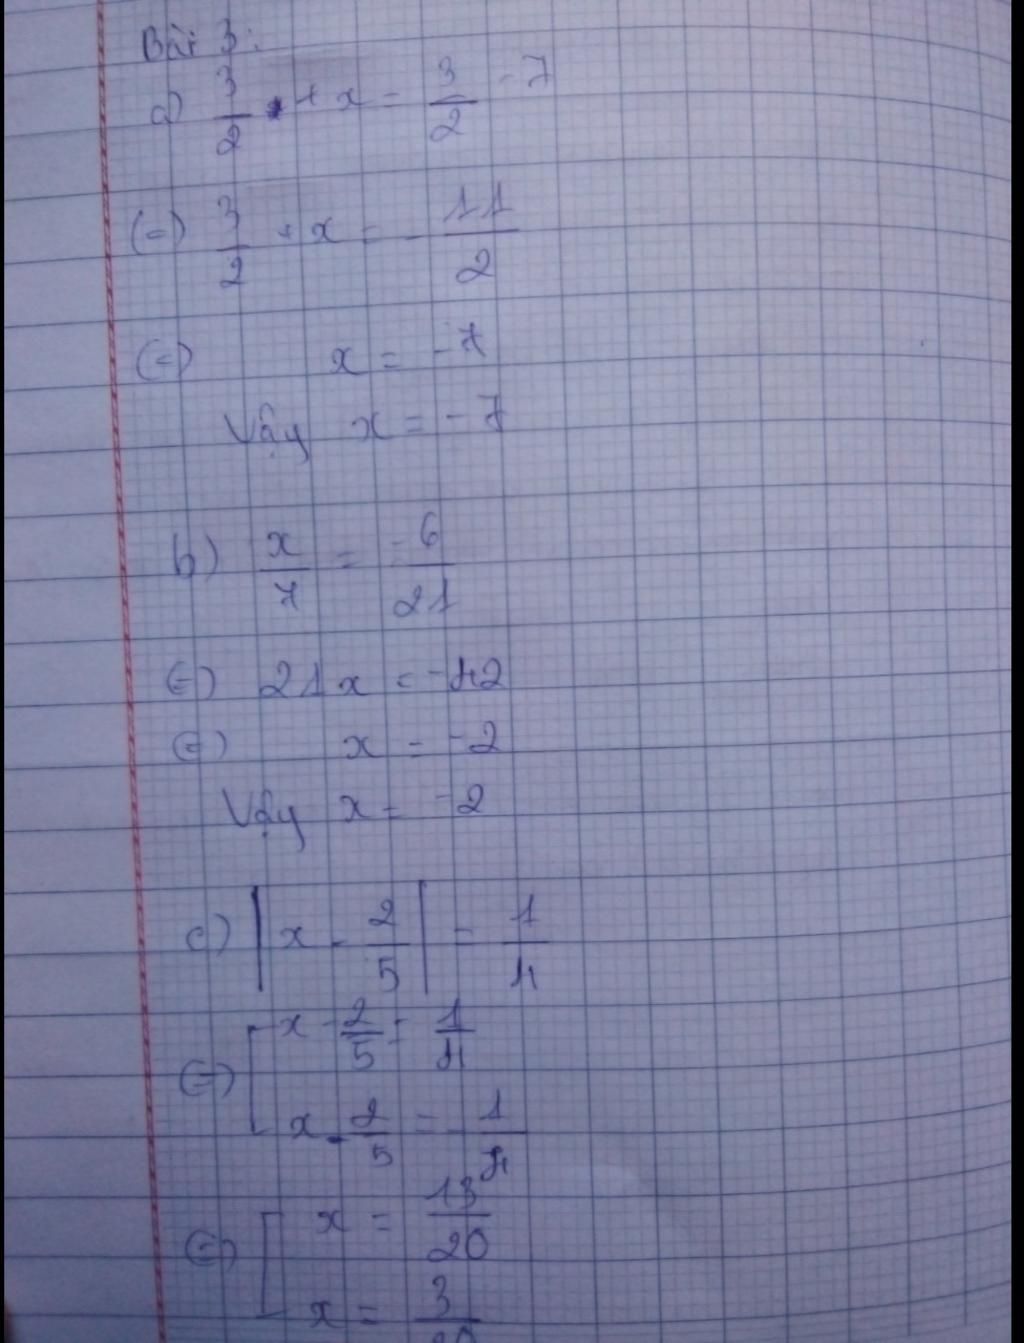 Bài 3:
a) 3/2 + x = 3/2 - 7
(=) 3/2 + x = - 11/2
(=) x = -7
Vậy x = -7
b) x/7 = -6/21
(=) 21x = -42
(=) x = -2
Vậy x = -2
c) |x - 2/5| = 1/4
(=) [ x - 2/5 = 1/4
x - 2/5 = - 1/4
(=) [ x = 13/20
x = 3/20